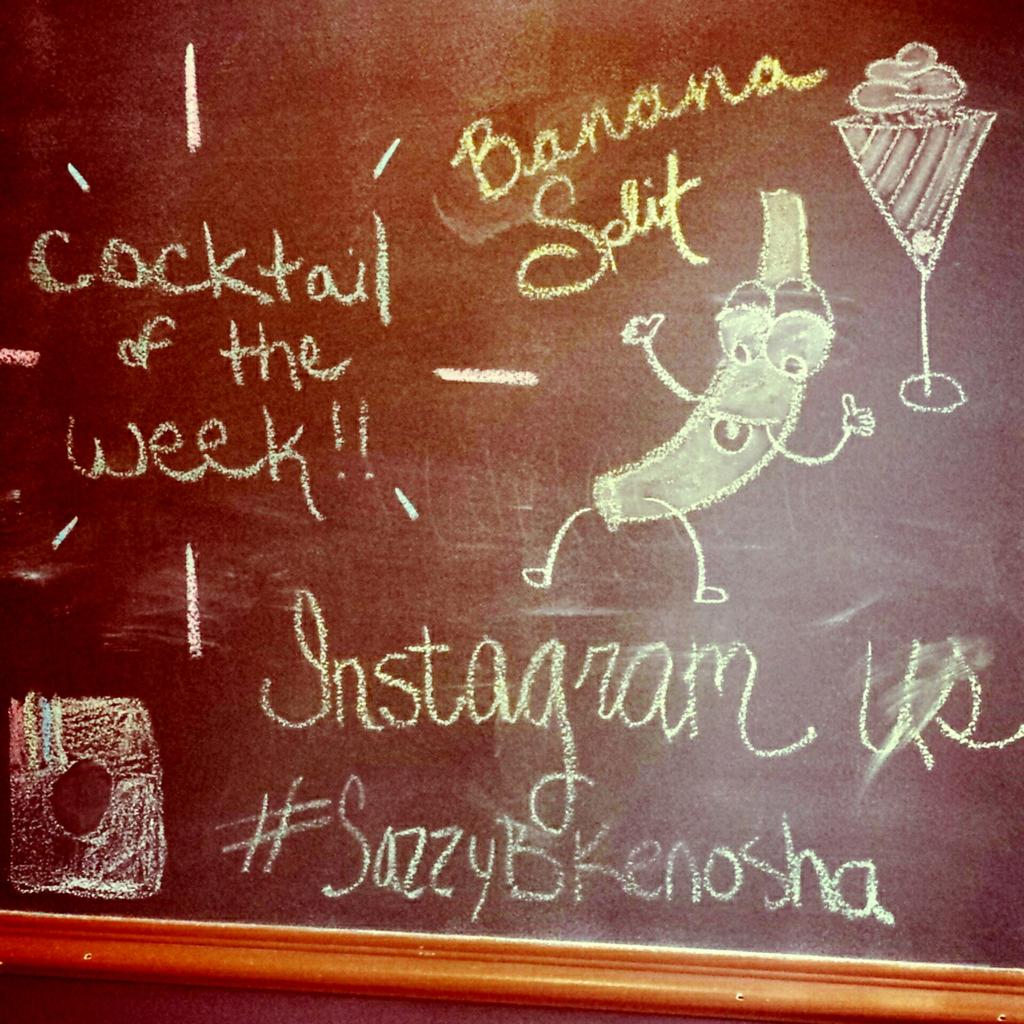 cocktail
of the
week!!
Banana
Split
Instagram us
#SazzyBKenosha